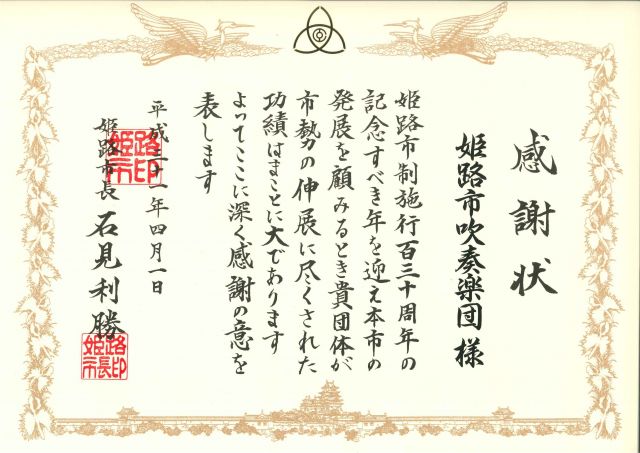 感謝状
姫路市吹奏楽団様
姫路市制施行百三十周年の
記念すべき年を迎え本市の
発展を顧みるとき貴団体が
市勢の伸展に尽くされた
功績はまことに大であります
よってここに深く感謝の意を
表します
平成三十一年四月一日
姫路市長 石見利勝
姫路市印
姫路市長印